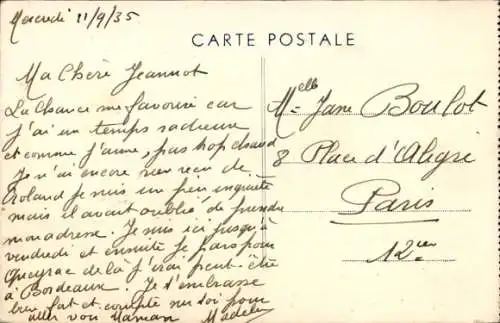 Mercredi 11/9/35
CARTE POSTALE
Ma Chère Jeannot
La Chance me favorise car
j'ai un temps radieux
et comme j'aime, pas trop chaud
Je n'ai encore rien reçu de
Roland je suis un peu inquiète
mais il avait oublié de prendre
mon adresse. Je suis ici jusqu'à
vendredi et ensuite je pars pour
de là j'irai peut-être
à Bordeaux. Je t'embrasse
bien fort et compte sur toi pour
aller voir Maman Madele
Melle Jane Boulot
8 Place d'Aligre
Paris
12em